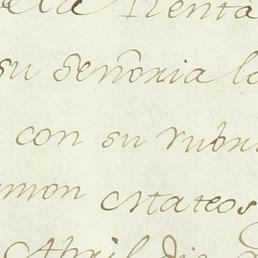 ela Renta
su señoria lo
con su rubri
amon Mateos
Abril, dio